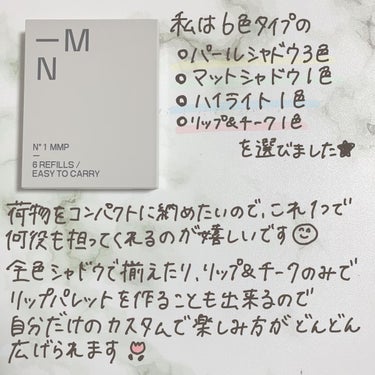 一M
N
N°1 MMP
—
6 REFILLS /
EASY TO CARRY
私は6色タイプの
○パールシャドウ3色
○マットシャドウ1色
○ハイライト1色
○リップ&チーク1色
を選びました★
荷物をコンパクトに納めたいので、これ1つで
何役も担ってくれるのが嬉しいです☺
全色シャドウで揃えたり、リップ&チークのみで
リップパレットを作ることも出来るので
自分だけのカスタムで楽しみ方がどんどん
広げられます🌷